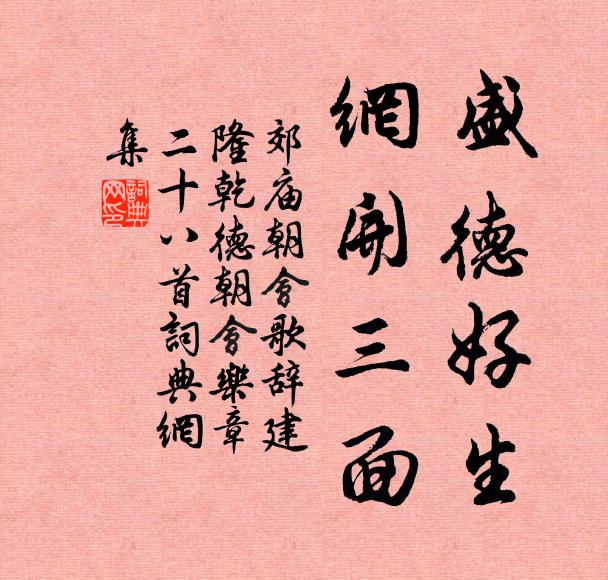 盛德好生
網開三面
郊庙朝會歌辞建
隆乾德朝會樂章
二十八首詞典網
集
詞典
网印